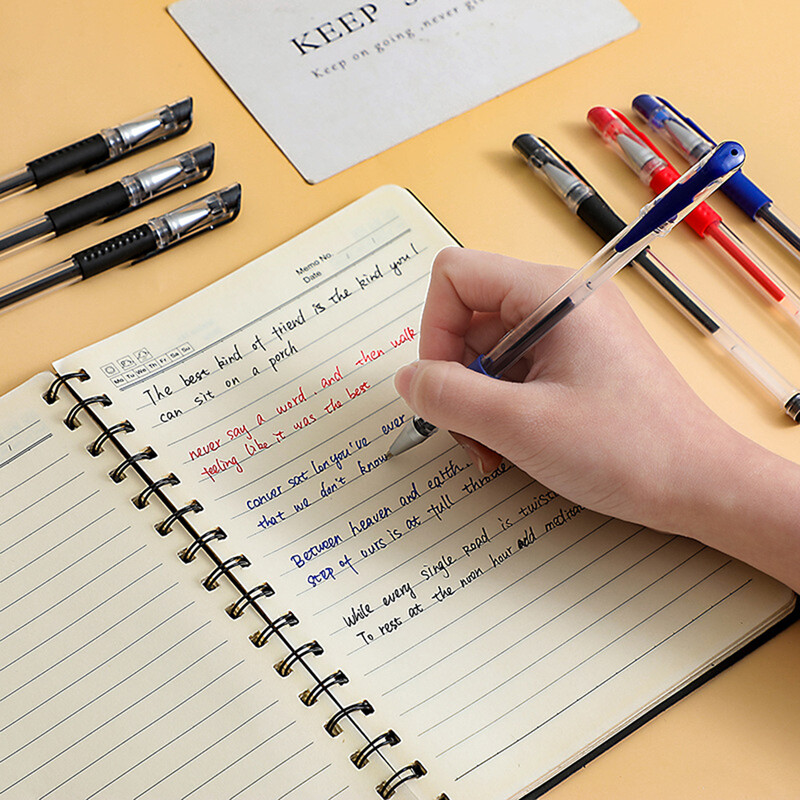 KEEP
Keep on going never
Memo No.
Date / /
Mo Tu We Th Fr Sa Su
The best kind of friend is the kind you!
can sit on a porch
never say a word . and then walk
feeling like it was the best
conver sat lon you've ever
that we don't know
Between heaven and earth
step of ours is at full
While every single Road is
To rest at the noon hour